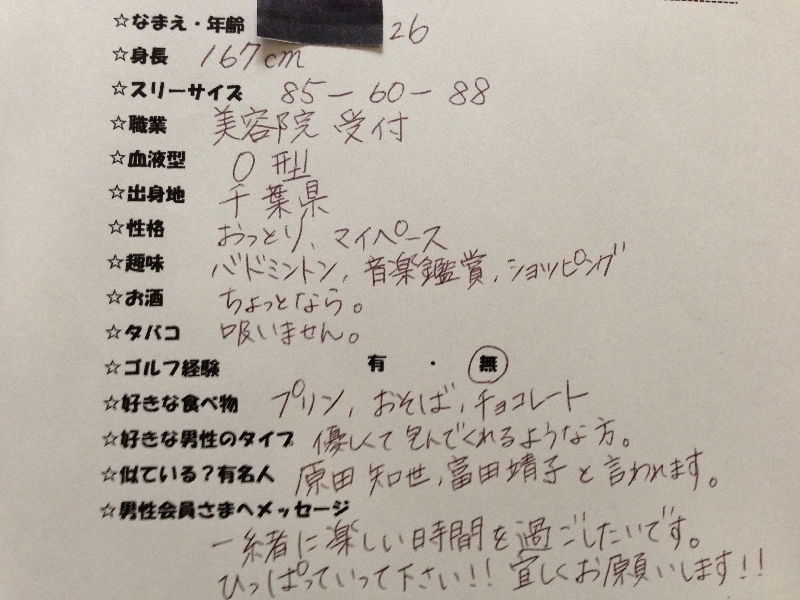 ☆なまえ・年齢 26
☆身長 167cm
☆スリーサイズ 85－60－88
☆職業 美容院 受付
☆血液型 O型
☆出身地 千葉県
☆性格 おっとり、マイペース
☆趣味 バドミントン、音楽鑑賞、ショッピング
☆お酒 ちょっとなら。
☆タバコ 吸いません。
☆ゴルフ経験 有・無
☆好きな食べ物 プリン、おそば、チョコレート
☆好きな男性のタイプ 優しくて包んでくれるような方。
☆似ている？有名人 原田知世、富田靖子と言われます。
☆男性会員さまへメッセージ
一緒に楽しい時間を過ごしたいです。
ひっぱっていって下さい!! 宜しくお願いします!!